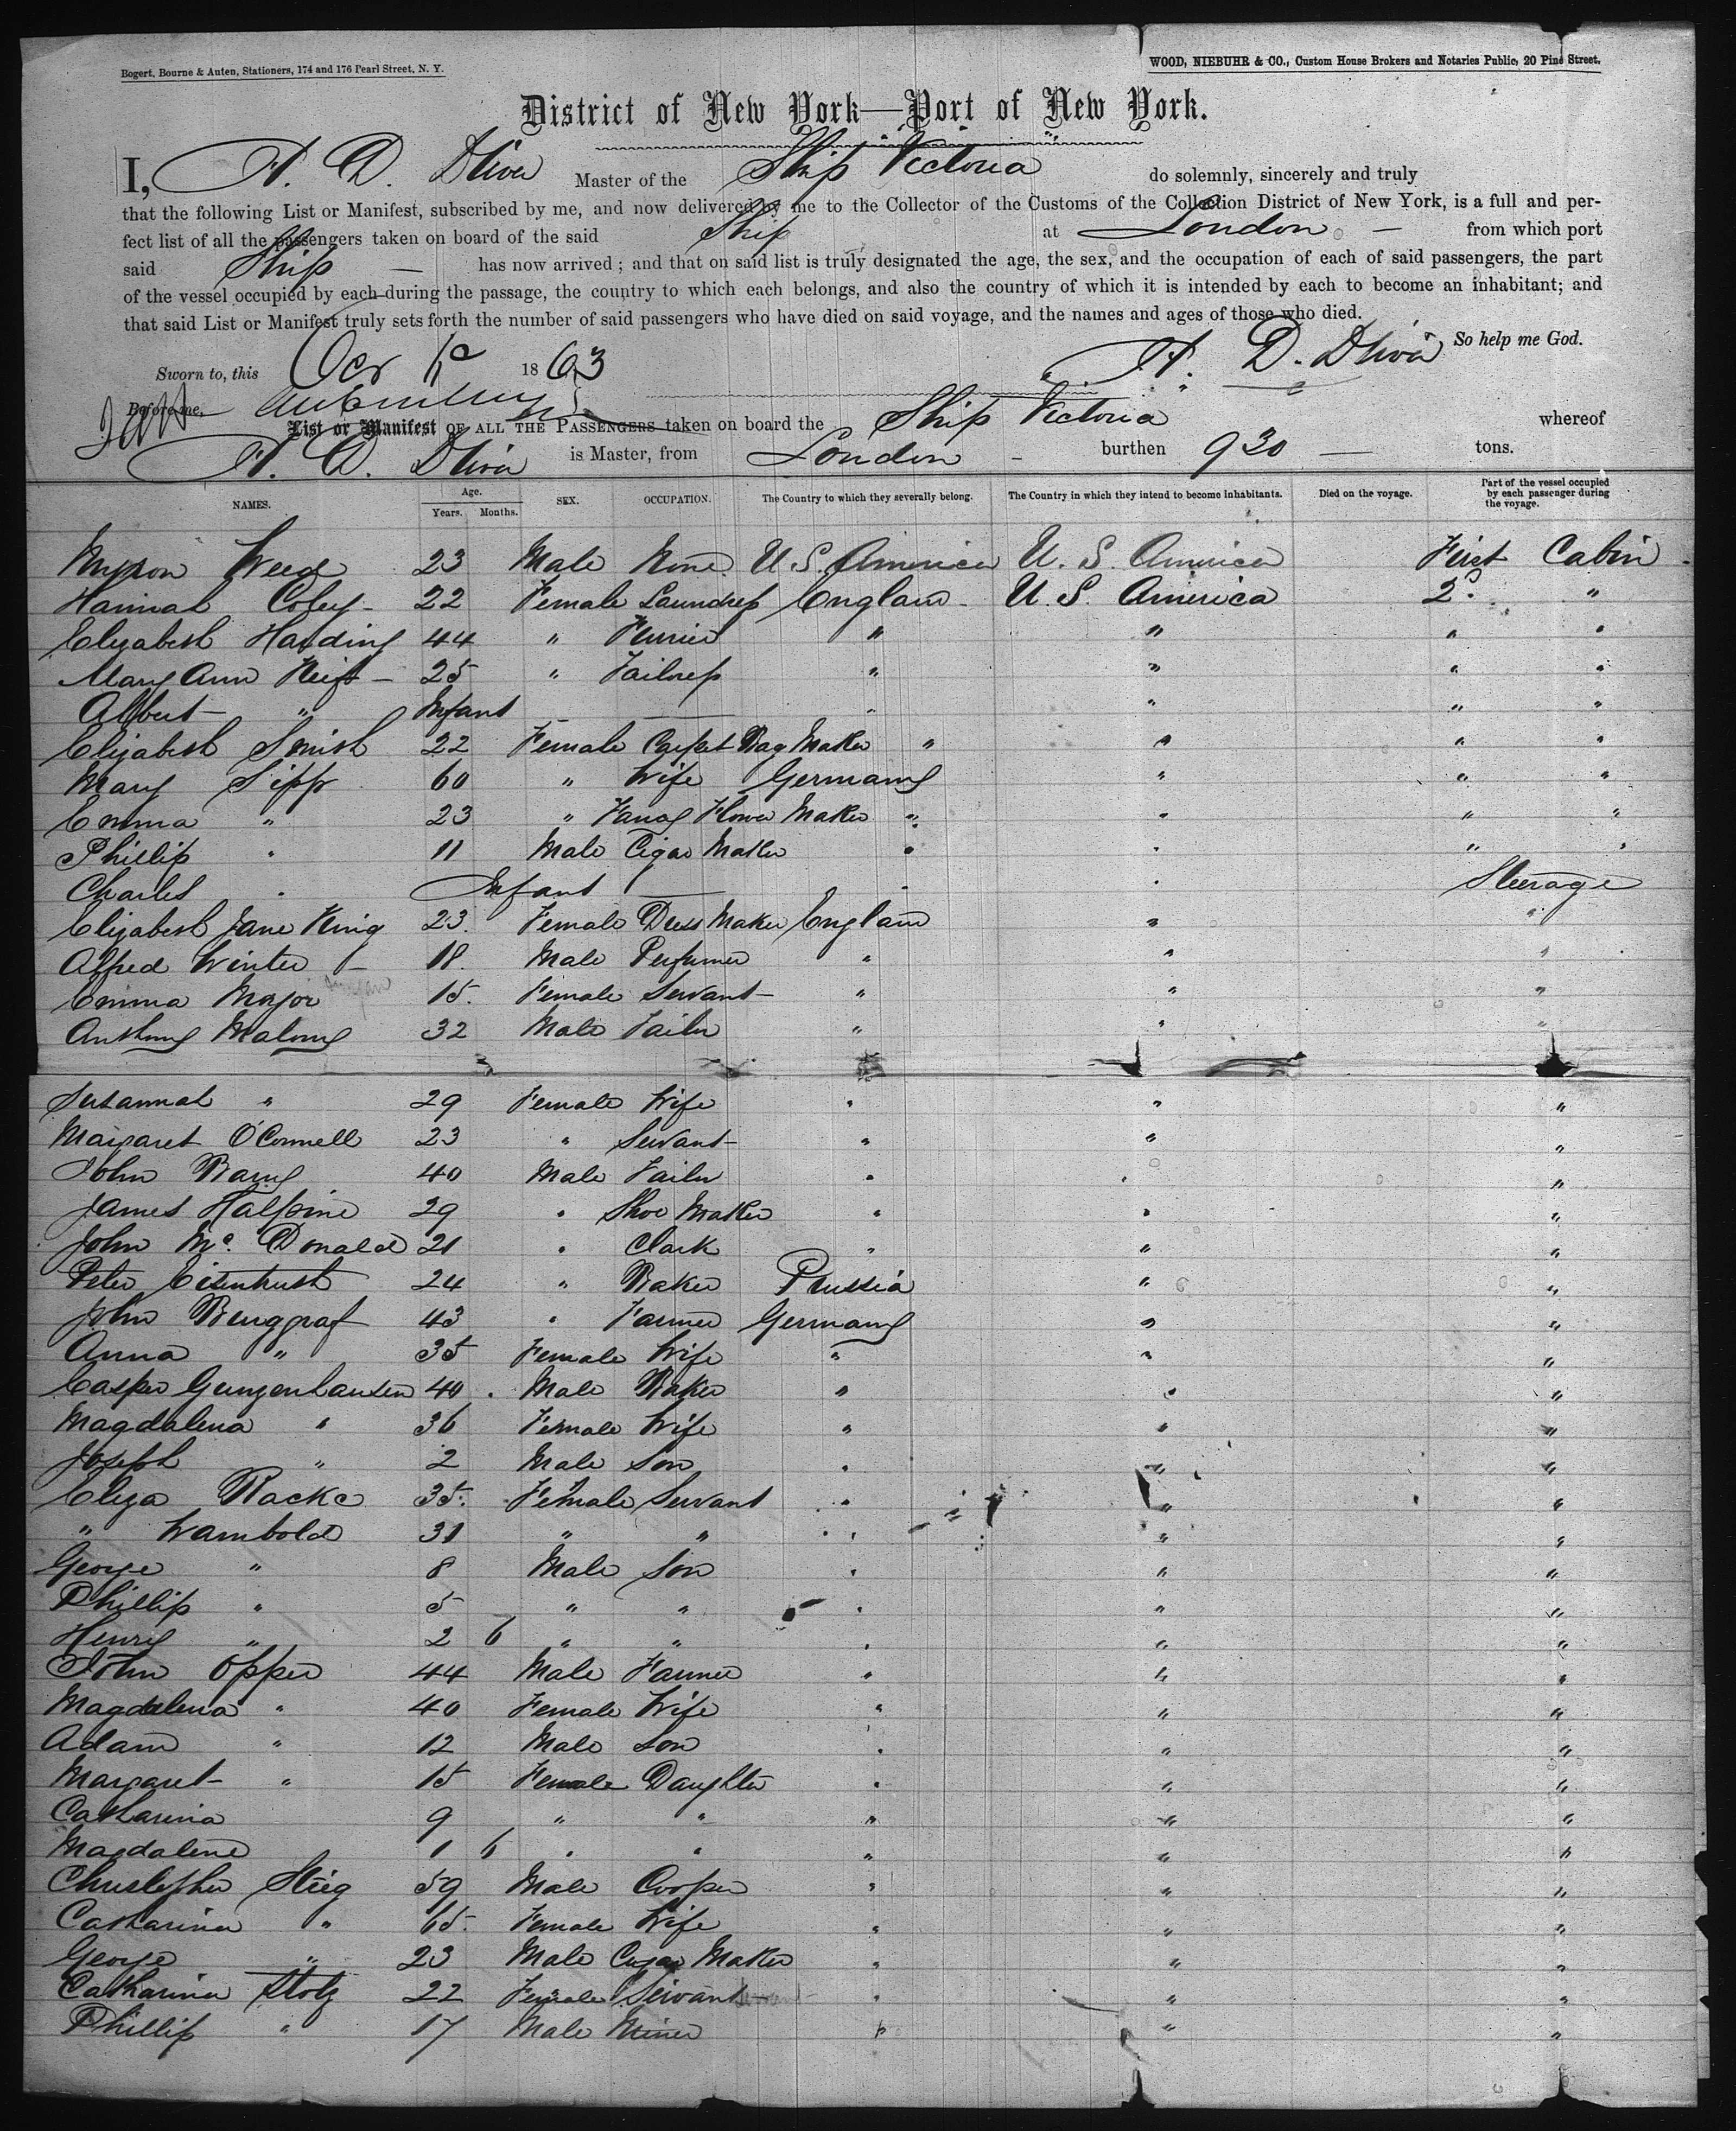 Bogert, Bourne & Auten, Stationers, 174 and 176 Pearl Street, N. Y.
WOOD, NIEBUHR & CO., Custom House Brokers and Notaries Public, 20 Pine Street.
District of New York—Port of New York.
I, Master of the Ship Victoria do solemnly, sincerely and truly
that the following List or Manifest, subscribed by me, and now delivered by me to the Collector of the Customs of the Collection District of New York, is a full and per-
fect list of all the passengers taken on board of the said Ship at London from which port
said Ship has now arrived; and that on said list is truly designated the age, the sex, and the occupation of each of said passengers, the part
of the vessel occupied by each during the passage, the country to which each belongs, and also the country of which it is intended by each to become an inhabitant; and
that said List or Manifest truly sets forth the number of said passengers who have died on said voyage, and the names and ages of those who died.
So help me God.
Sworn to, this Oct 1863
Before me,
List or Manifest OF ALL THE PASSENGERS taken on board the Ship Victoria whereof
is Master, from London burthen 930 tons.
NAMES. Age. Years. Months. SEX. OCCUPATION. The Country to which they severally belong. The Country in which they intend to become Inhabitants. Died on the voyage. Part of the vessel occupied by each passenger during the voyage.
Myron Weed 23 Male None U. S. America U. S. America First Cabin
Hannah Coley 22 Female Laundress England U. S. America 2d "
Elizabeth Harding 44 " Furrier " " " "
Mary Ann 25 " Tailoress " " " "
Albert " Infant " " " "
Elizabeth Smith 22 Female Carpet Bag Maker " " " "
Mary Sipp 60 " Wife Germany " " "
Emma " 23 " Fancy Flower Maker " " " "
Phillip " 11 Male Cigar Maker " " " "
Charles " Infant " " Steerage
Elizabeth Jane King 23 Female Dress Maker England " "
Alfred Winter 18 Male Perfumer " " "
Emma Major 15 Female Servant " " "
Anthony Malony 32 Male Tailor " " "
Susannah " 29 Female Wife " " "
Margaret O'Connell 23 " Servant " " "
John Barry 40 Male Tailor " " "
James Halpine 29 " Shoe Maker " " "
John Mc Donald 21 " Clark " " "
Peter 24 " Baker Prussia " "
John Berggraf 43 " Farmer Germany " "
Anna " 35 Female Wife " " "
Casper Gunzenhausen 40 Male Baker " " "
Magdalena " 36 Female Wife " " "
Joseph " 2 Male Son " " "
Eliza Racke 35 Female Servant " " "
" Wambold 31 " " " " "
George " 8 Male Son " " "
Phillip " 5 " " " " "
Henry " 2 6 " " " " "
John Opper 44 Male Farmer " " "
Magdalena " 40 Female Wife " " "
Adam " 12 Male Son " " "
Margaret " 15 Female Daughter " " "
Catharina 9 " " " " "
Magdalena 1 6 " " " " "
Christopher Stieg 59 Male Cooper " " "
Catharina " 65 Female Wife " " "
George " 23 Male Cigar Maker " " "
Catharina Stotz 22 Female Servant " " "
Phillip " 17 Male Miner " " "